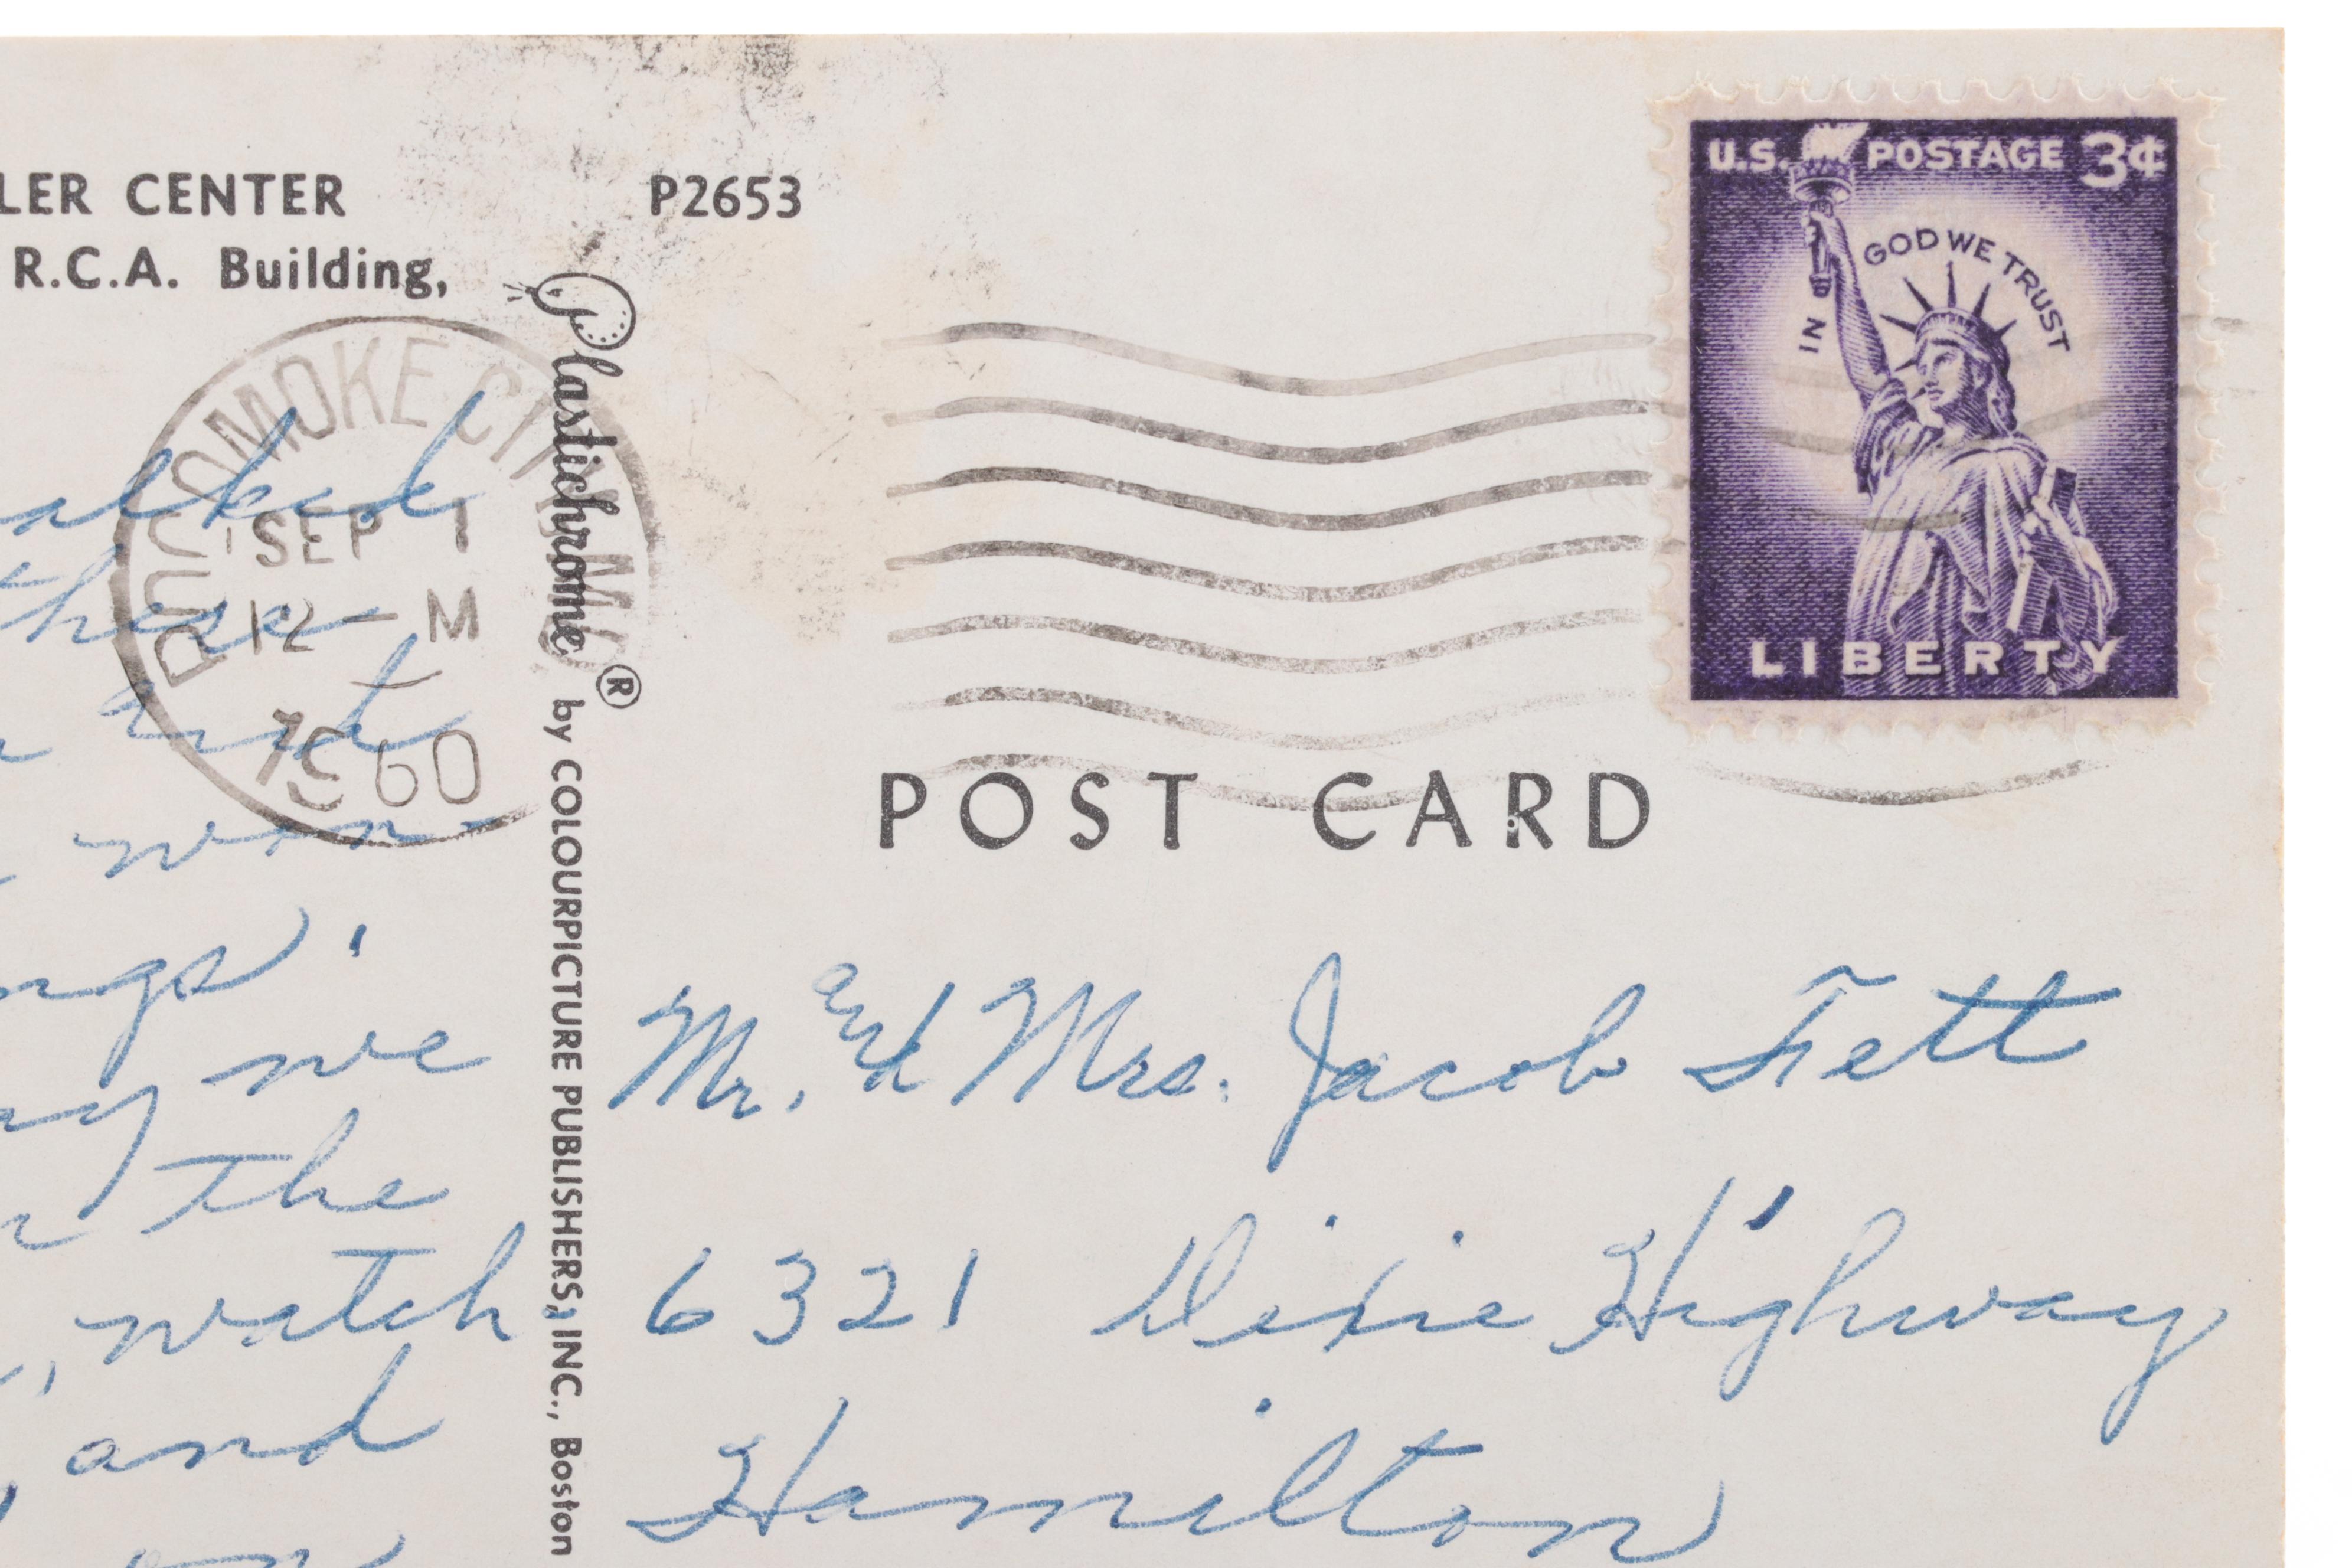 LER CENTER
R.C.A. Building,
P2653
U.S. POSTAGE 3¢
IN GOD WE TRUST
LIBERTY
POCOMOKE CITY
SEP 1
12 - M
1960
Plastichrome® by COLOURPICTURE PUBLISHERS, INC., Boston
POST CARD
alked
these
and
win-
ngs.
we
the
, watch
, and
Mr. and Mrs. Jacob Fett
6321 Dixie Highway
Hamilton